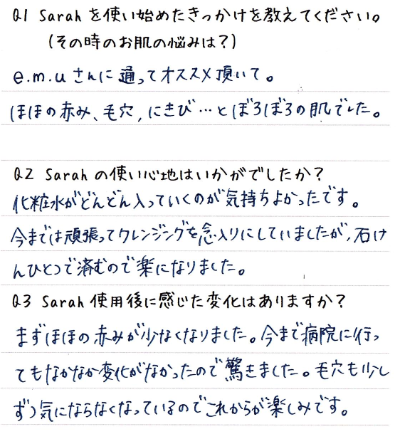 Q1 Sarahを使い始めたきっかけを教えてください。
(その時のお肌の悩みは?)
e.m.uさんに通ってオススメ頂いて。
ほほの赤み、毛穴、にきび…とぼろぼろの肌でした。
Q2 Sarahの使い心地はいかがでしたか?
化粧水がどんどん入っていくのが気持ちよかったです。
今までは頑張ってクレンジングを念入りにしていましたが、石け
んひとつで済むので楽になりました。
Q3 Sarah使用後に感じた変化はありますか?
まずほほの赤みが少なくなりました。今まで病院に行っ
てもなかなか変化がなかったので驚きました。毛穴も少し
ずつ気にならなくなっているのでこれからが楽しみです。